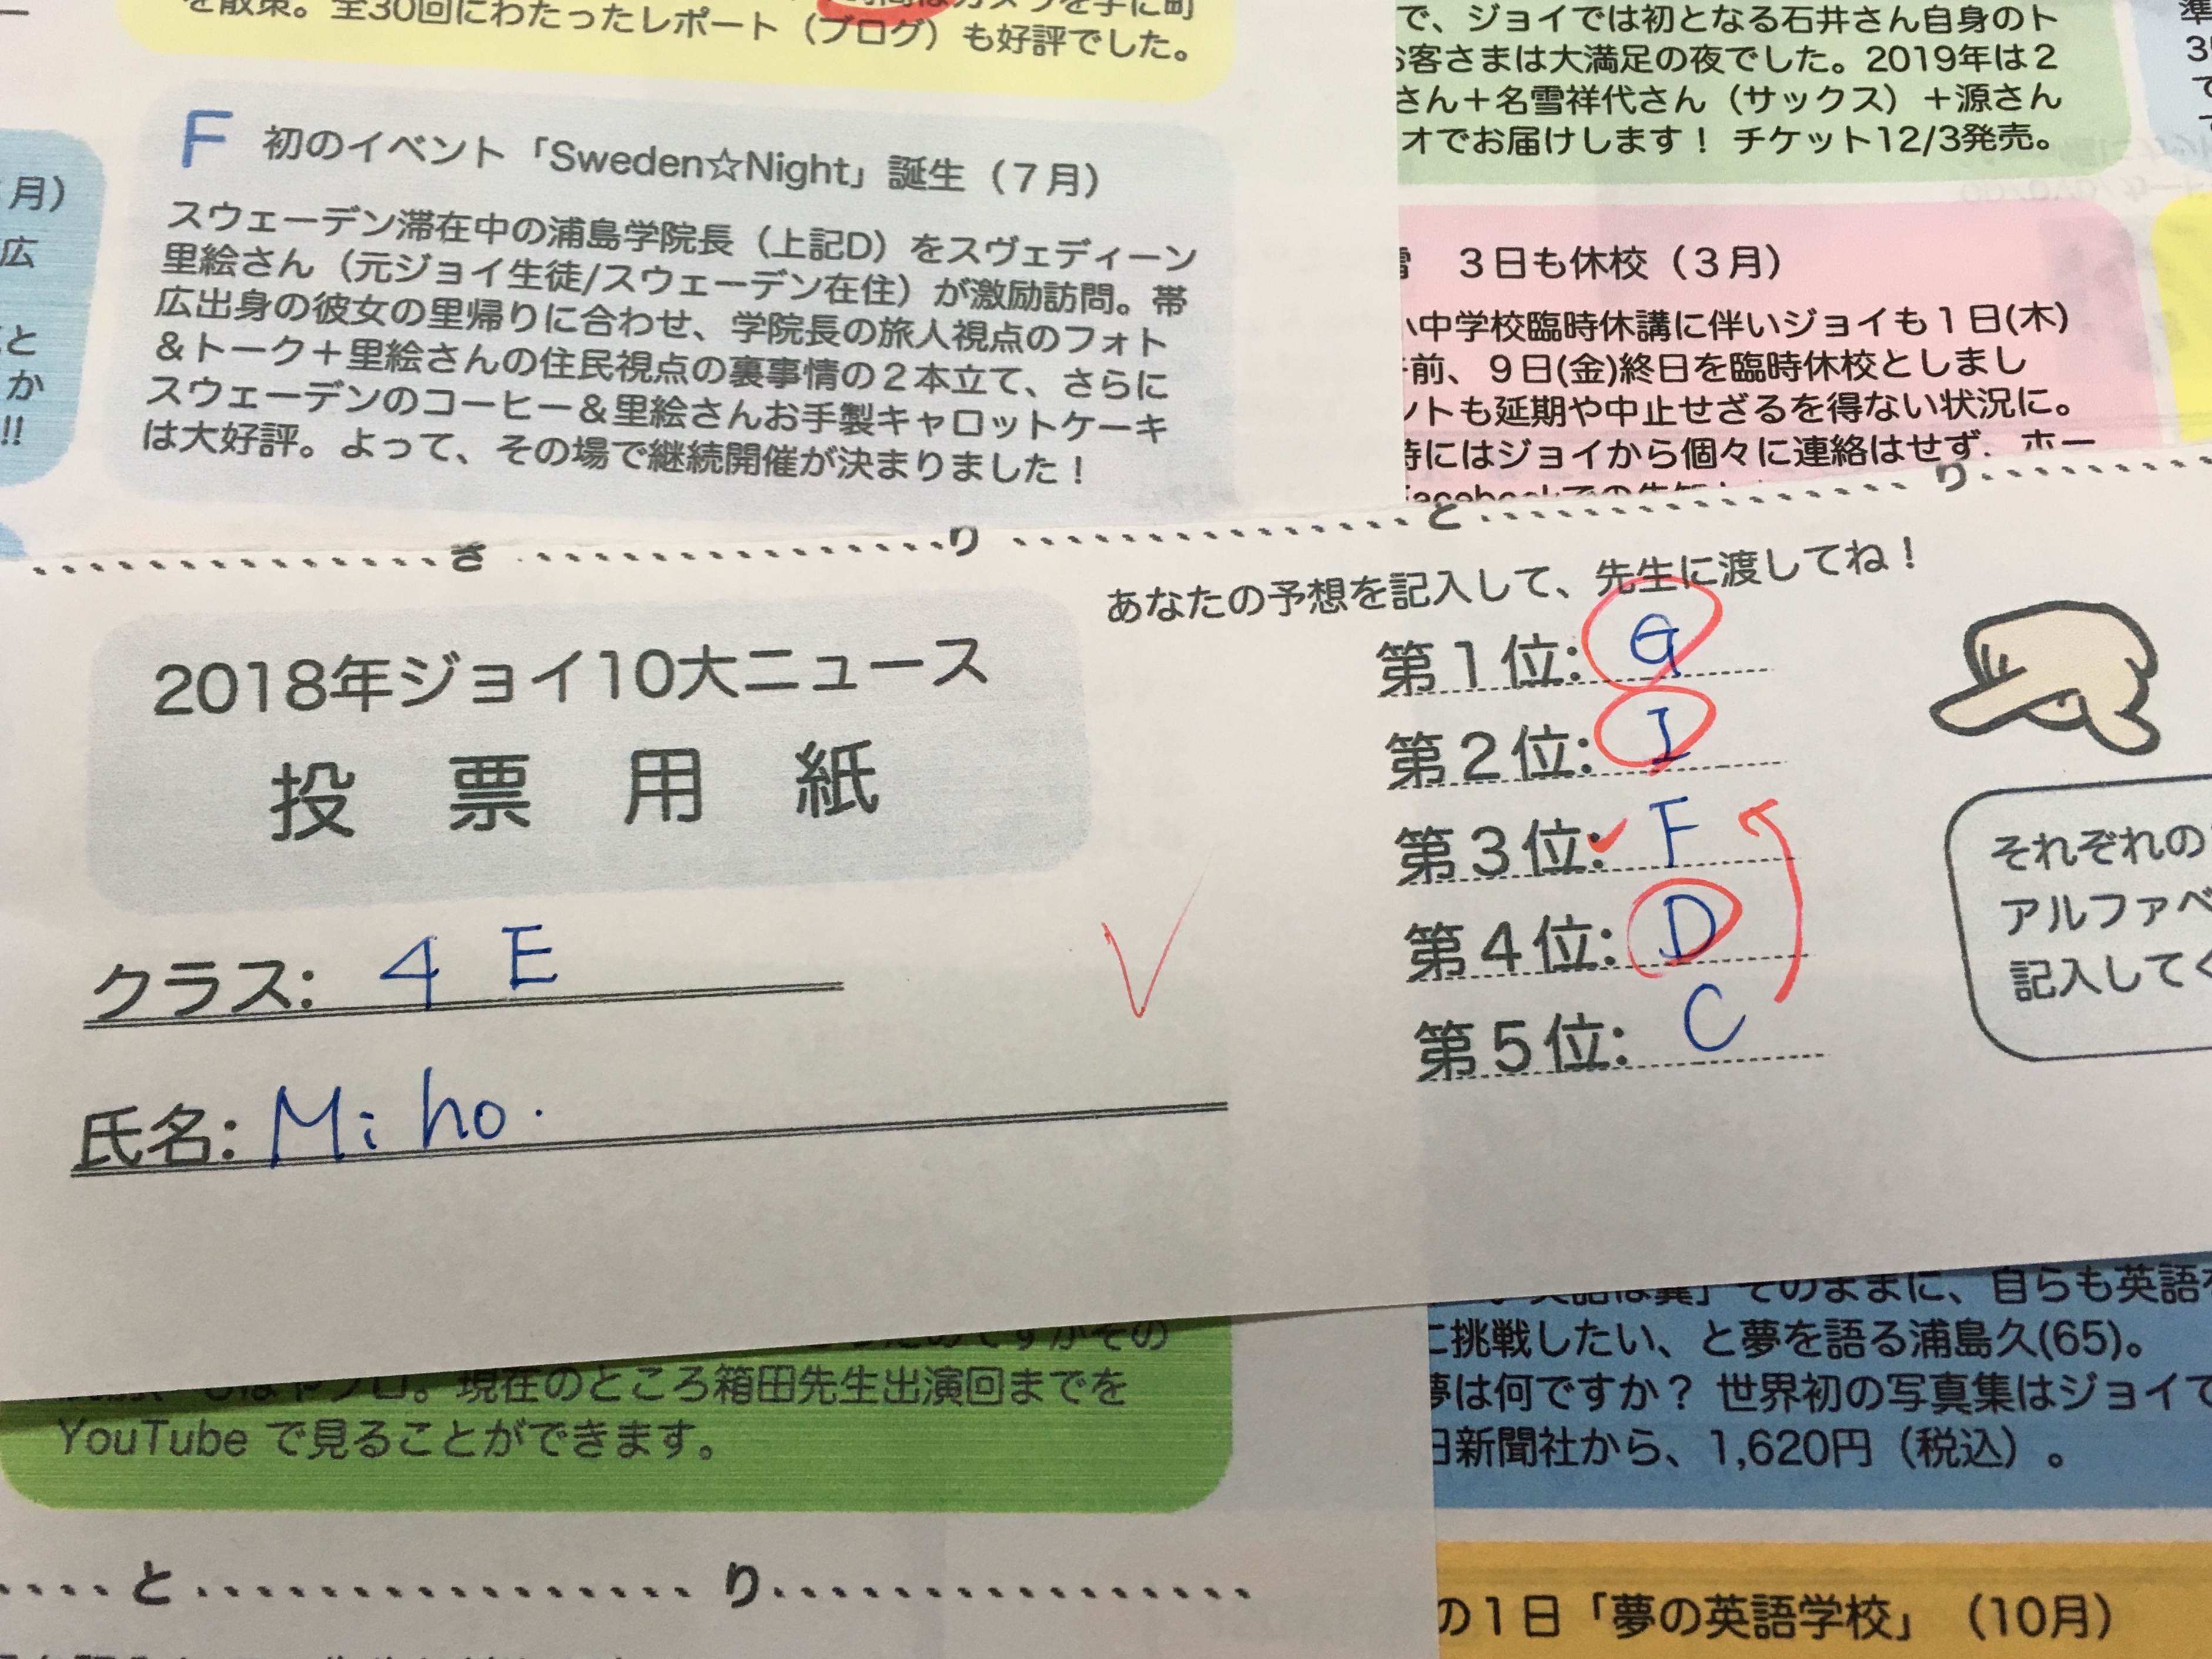 を散策。全30回にわたったレポート（ブログ）も好評でした。
F 初のイベント「Sweden☆Night」誕生（7月）
スウェーデン滞在中の浦島学院長（上記D）をスヴェディーン
里絵さん（元ジョイ生徒/スウェーデン在住）が激励訪問。帯
広出身の彼女の里帰りに合わせ、学院長の旅人視点のフォト
＆トーク＋里絵さんの住民視点の裏事情の２本立て、さらに
スウェーデンのコーヒー＆里絵さんお手製キャロットケーキ
は大好評。よって、その場で継続開催が決まりました！
月）
広
と
か
!!
で、ジョイでは初となる石井さん自身のト
お客さまは大満足の夜でした。2019年は２
さん＋名雪祥代さん（サックス）＋源さん
オでお届けします！ チケット12/3発売。
雪 ３日も休校（３月）
小中学校臨時休講に伴いジョイも１日(木)
午前、９日(金)終日を臨時休校としまし
ントも延期や中止せざるを得ない状況に。
時にはジョイから個々に連絡はせず、ホー
き り と り
2018年ジョイ10大ニュース
投 票 用 紙
クラス: 4 E
氏名: Miho.
あなたの予想を記入して、先生に渡してね！
第１位: G
第２位: I
第３位: F
第４位: D
第５位: C
それぞれの
アルファベ
記入してく
現在のところ箱田先生出演回までを
YouTube で見ることができます。
と り
そのままに、自らも英語
に挑戦したい、と夢を語る浦島久(65)。
夢は何ですか？ 世界初の写真集はジョイで
日新聞社から、1,620円（税込）。
の１日「夢の英語学校」（10月）